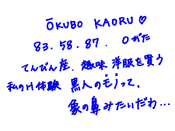 ŌKUBO KAORU♡
83.58.87. O がた
てんびん座. 趣味 洋服を買う
私のH体験 黒人のモノって、
象の鼻みたいだわ…